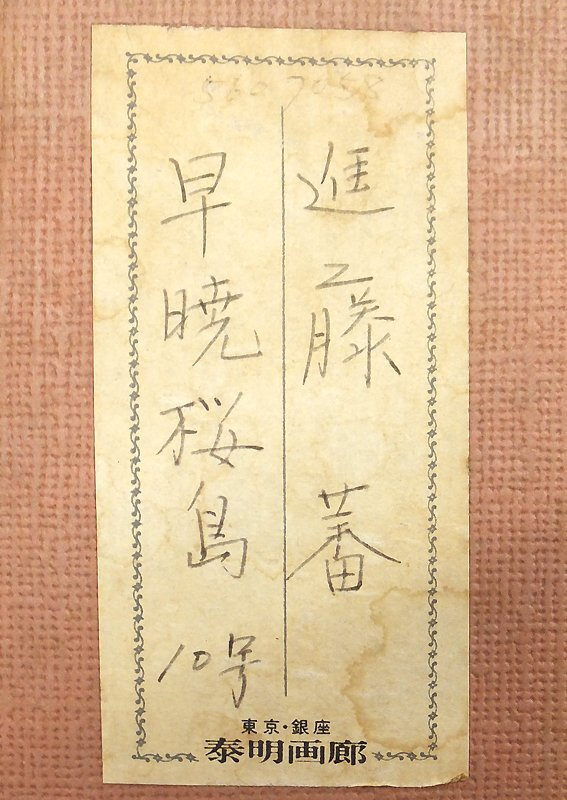 5607058
進藤 蕃
早暁桜島 10号
東京・銀座
泰明画廊